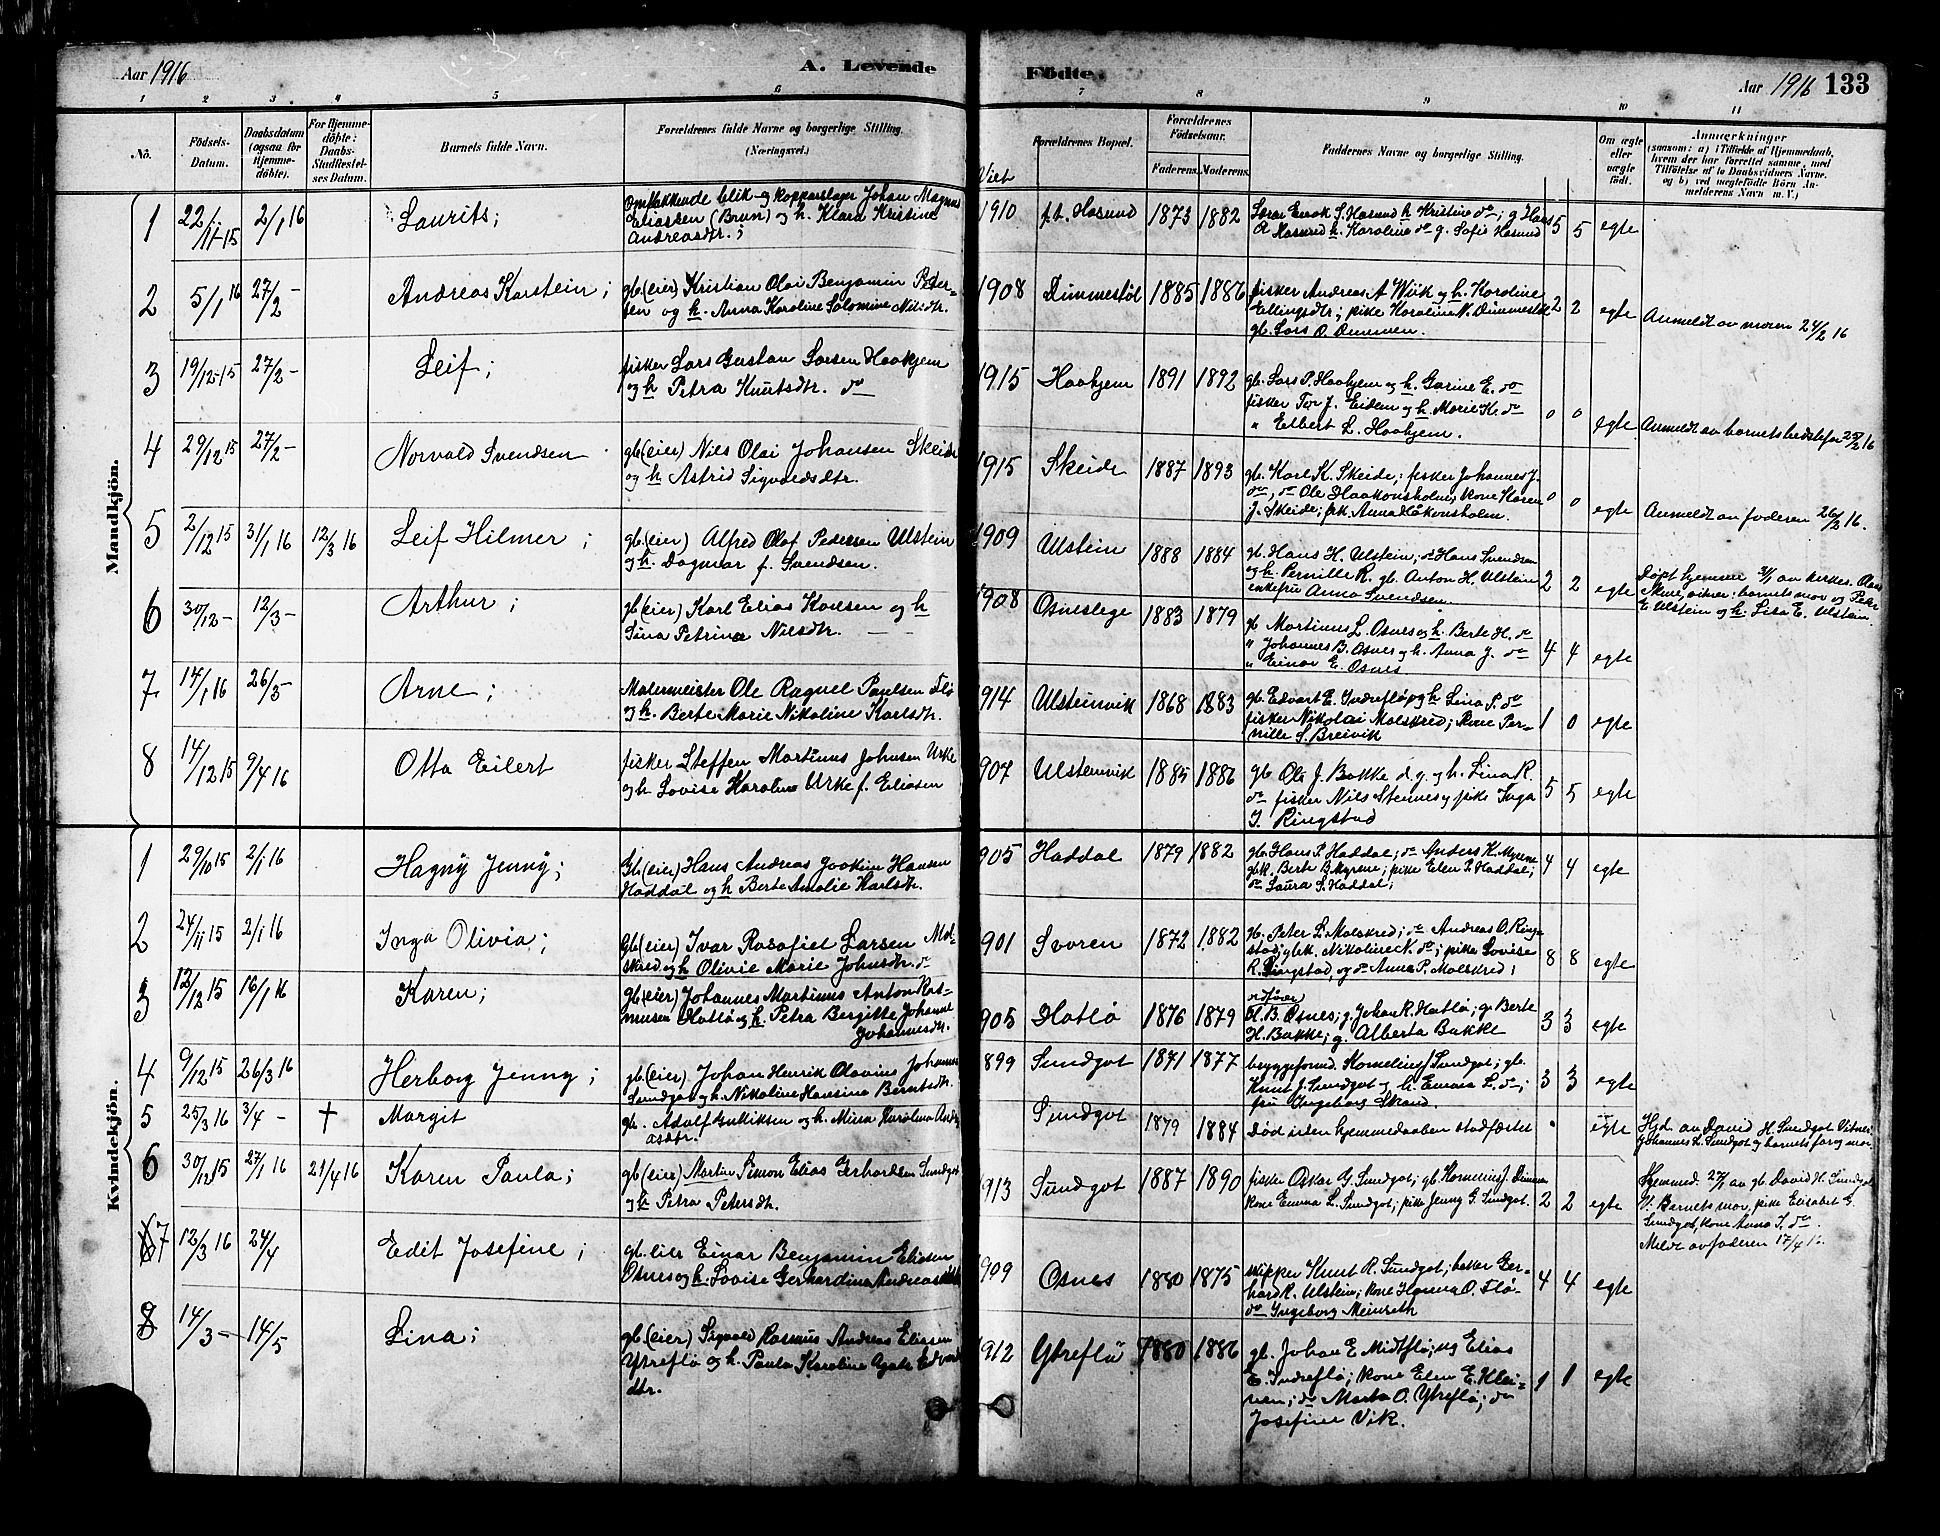 Aar 1916
A. Levende Födte.
Aar 1916 133
1 2 3 4 5 6 7 8 9 10 11
Nö.
Födsels-Datum.
Daabsdatum (ogsaa for Hjemme-döbte).
For Hjemme-döbte: Daabs-Stadfæstel-ses Datum.
Barnets fulde Navn.
Forældrenes fulde Navne og borgerlige Stilling. (Næringsvei.)
Viet
Forældrenes Bopæl.
Forældrenes Födselsaar.
Faderens. Moderens.
Faddernes Navne og borgerlige Stilling.
Om ægte eller uægte født.
Anmærkninger
(saasom: a) i Tilfælde af Hjemmedaab, hvem der har forrettet samme, med Tilföielse af to Daabsvidners Navne, og b) ved uægtefödte Börn Anmelderens Navn m. V.)
Mandkjön.
1 22/11-15 2/1 16 Laurits;
omflakkende blik- og kopperslager Johan Magnus
Eliassen (Brun) og h. Klara Kristine
Andreasdtr.;
1910 p.t. Hasund 1873 1882
Lars Enok S. Hasund h Kristine do; g Hans
A Hasund h. Karoline do g. Sofie Hasund
5 5 egte
2 5/1 16 27/2 - Andreas Karstein;
gb. (eier) Kristian Olai Benjamin Peter-
sen og h. Anna Karoline Solomine Nilsdtr.
1908 Dimmestøl 1885 1886
fisker Andreas A Wiik og h. Karoline
Ellingsdtr; pike Karoline N. Dimmestøl
gb. Lars O. Dimmen.
2 2 egte Anmeldt av moren 24/2 16
3 19/12-15 27/2- Leif;
fisker Lars Gustav Larsen Haahjem
og h Petra Knutsdtr. do
1915 Haahjem 1891 1892
gb. Lars P. Haahjem og h. Garine E. do
fisker Tor J. Eidem og h. Marie K. do
" Elbert L. Haahjem.
0 0 egte Anmeldt av barnets bedstefar 25/2 16
4 29/12 15 27/2- Norvald Svendsen
gb (eier) Nils Olai Johansen Skeide
og h Astrid Sigvaldsdtr.
1915 Skeide 1887 1893
gb. Karl K. Skeide; fisker Johannes J.
do, do Ole Haakonsholm; kone Karen
J. Skeide; pik. Anna Håkonsholm.
0 0 egte Anmeldt av faderen 26/2 16.
5 2/12 15 31/1 16 12/3 16 Leif Hilmer;
gb. (eier) Alfred Olaf Pedersen Ulstein
og h. Dagmar f. Svendsen.
1909 Ulstein 1888 1884
gb. Hans H. Ulstein; do Hans Svendsen
og h. Pernille R. gb. Anton H. Ulstein
enkefru Anna Svendsen.
2 2 egte
Døpt hjemme 31/1 av kirkes. Olaus
barnets mor og Petr
E Ulstein og h. Lisa E. Ulstein.
6 30/12- 12/3- Arthur;
gb (eier) Karl Elias Karlsen og h
Lina Petrina Nilsdtr.
1908 Osneslege 1883 1879
gb Martinus L. Osnes og h. Berte H. do
" Johannes B. Osnes og h. Anna J. do
" Einar E. Osnes
4 4 egte
7 14/1 16 26/3- Arne;
Malermeister Ole Ragnel Paulsen Flø
og h. Berte Marie Nikoline Karlsdtr.
914 Ulsteinvik 1868 1883
gb. Edvart E. Indreflø og h Lina P. do
fisker Nikolai Malskred; kone Per-
nille S. Breivik
1 0 egte
8 14/12 15 9/4 16 Otto Eilert
fisker Steffen Martinus Johnsen Urke
og h Lovise Karoline Urke f. Eliasen
907 Ulsteinvik 1885 1886
gb. Ole J. Bakke d. y. og h. Lina R.
do fisker Nils Stennes og pike Inga
J. Ringstad
5 5 egte
Kvindekjön.
1 29/10 15 2/1 16 Hagny Jenny;
Gb. (eier) Hans Andreas Joakim Hansen
Haddal og h Berte Amalie Karlsdtr.
905 Haddal 1879 1882
gb. Hans P. Haddal; do Anders K. Myrene
gbk. Berte B. Myrene; pike Elen P. Haddal;
do Laura S. Haddal;
4 4 egte
2 24/11 15 2/1 16 Inga Olivia;
gb (eier) Ivar Rasafiel Larsen Mal-
skred og h Olivie Marie Johnsdtr. do
901 Svoren 1872 1882
gb. Peter L. Malskred; do Andreas O. Ring-
stad; gbk. Nikoline N. do; pike Lovise
R. Ringstad, og do Anna P. Malskred;
8 8 egte
3 12/12 15 16/1 16 Karen;
gb (eier) Johannes Martinus Anton Ras-
mussen Hatlø og h. Petra Bergitte Johanne
Johannesdtr.
905 Hatlø 1876 1879
ordfører
H. B. Osnes; g. Johan R. Hatlø; g. Berte
H. Bakke; g. Alberta Bakke
3 3 egte
4 9/12 15 26/3 16 Herborg Jenny;
gb. (eier) Johan Henrik Olavius Johannes
Sundgot og h. Nikoline Hansina Berntsdtr.
899 Sundgot 1871 1877
byggeformd. Kornelius J Sundgot; gb.
Knut J. Sundgot og h. Emma L. do;
fru Ingeborg Skaad.
3 3 egte
5 25/3 16 3/4 - † Margit
gb. Adolf Gullikten og h. Mina Karolina Andre
asdtr.
Sundgot 1879 1884
Død uten hjemmedaaben stadfæstet
egte
Hjd. av David H. Sundgot Vitner
Johannes L. Sundgot og barnets far og mor.
6 30/12 15 27/1 16 21/4 16 Karen Paula;
gb (eier) Martin Simon Elias Gerhardsen Sundgot
og h Petra Petersdtr.
913 Sundgot 1887 1890
fisker Oskar G. Sundgot; gb Kornelius J. Dimmen
kone Emma L. Sundgot; pike Jenny G. Sundgot.
2 2 egte
Hjemmed. 27/1 av gb. David H. Sundgot
V. Barnets mor, pike Elisabet G
Sundgot, kone Anna J. do.
Meldt av faderen 17/4 16.
7 12/3 16 24/4 Edit Josefine;
gb. eier Einar Benjamin Eliasen
Osnes og h. Lovise Gerhardina Andreasdtr
909 Osnes 1880 1875
skipper Knut R. Sundgot; bakker Ger-
hard R. Ulstein; kone Hanna O. Flø
do Ingeborg Meinseth
4 4 egte
8 14/3- 14/5 Lina;
gb. (eier) Sigvald Rasmus Andreas Eliasen
Ytreflø og h. Paula Karoline Agate Edvard
dtr.
1912 Ytreflø 1880 1886
gb. Johan E Midtflø; og Elias
E. Indreflø; kone Elen E. Klei-
ven; do Marta O. Ytreflø; do
Josefine Vik.
1 1 egte